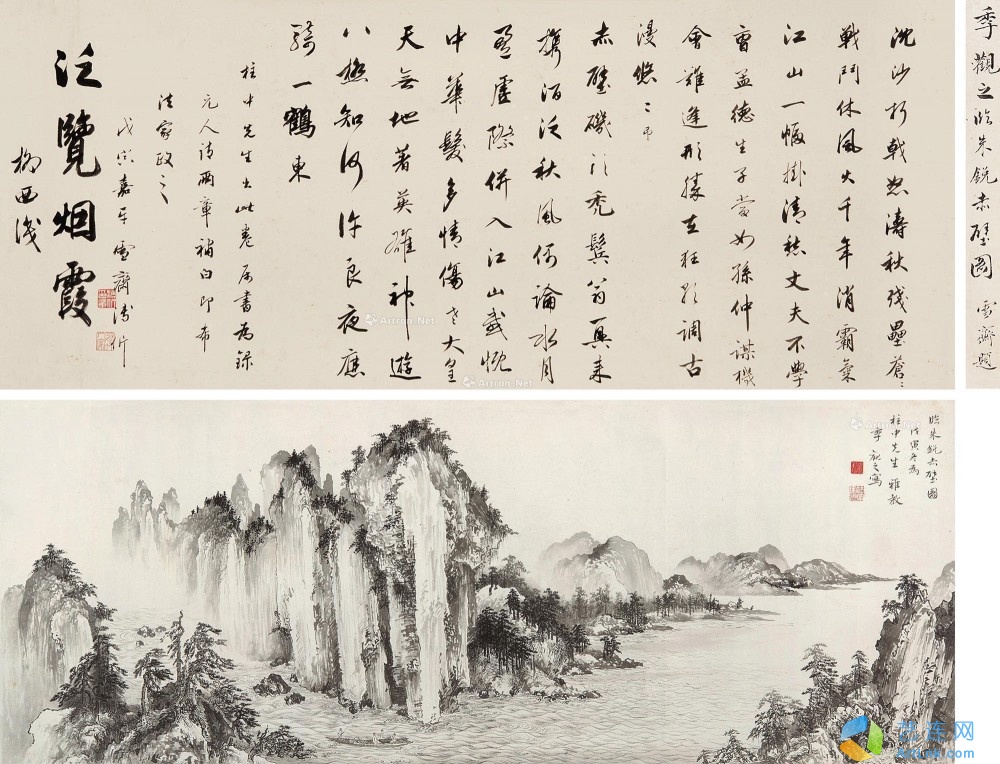 季觀之臨朱銳赤壁圖 雪齋題
沈沙折戟怒濤秋殘壘蒼〻
戰鬥休風火千年消霸氣
江山一幅掛清愁丈夫不學
曹孟德生子當如孫仲謀機
會難逢形勝在狂歌調古
漫悠〻弔
赤壁磯頭禿鬢翁更来
攜酒泛秋風何論水月
盈虛際併入江山感慨
中華髮多情傷老大皇
天無地著英雄神遊
八極知何許良夜應
騎一鶴東
柱中先生出此卷屬書為錄
元人詩兩章補白即希
法家政之
戊寅嘉平雪齋溥伒
泛覽烟霞
臨朱銳赤壁圖
戊寅冬為
柱中先生雅教
季觀之寫
Artron.Net
Artron.Net
Artron.Net